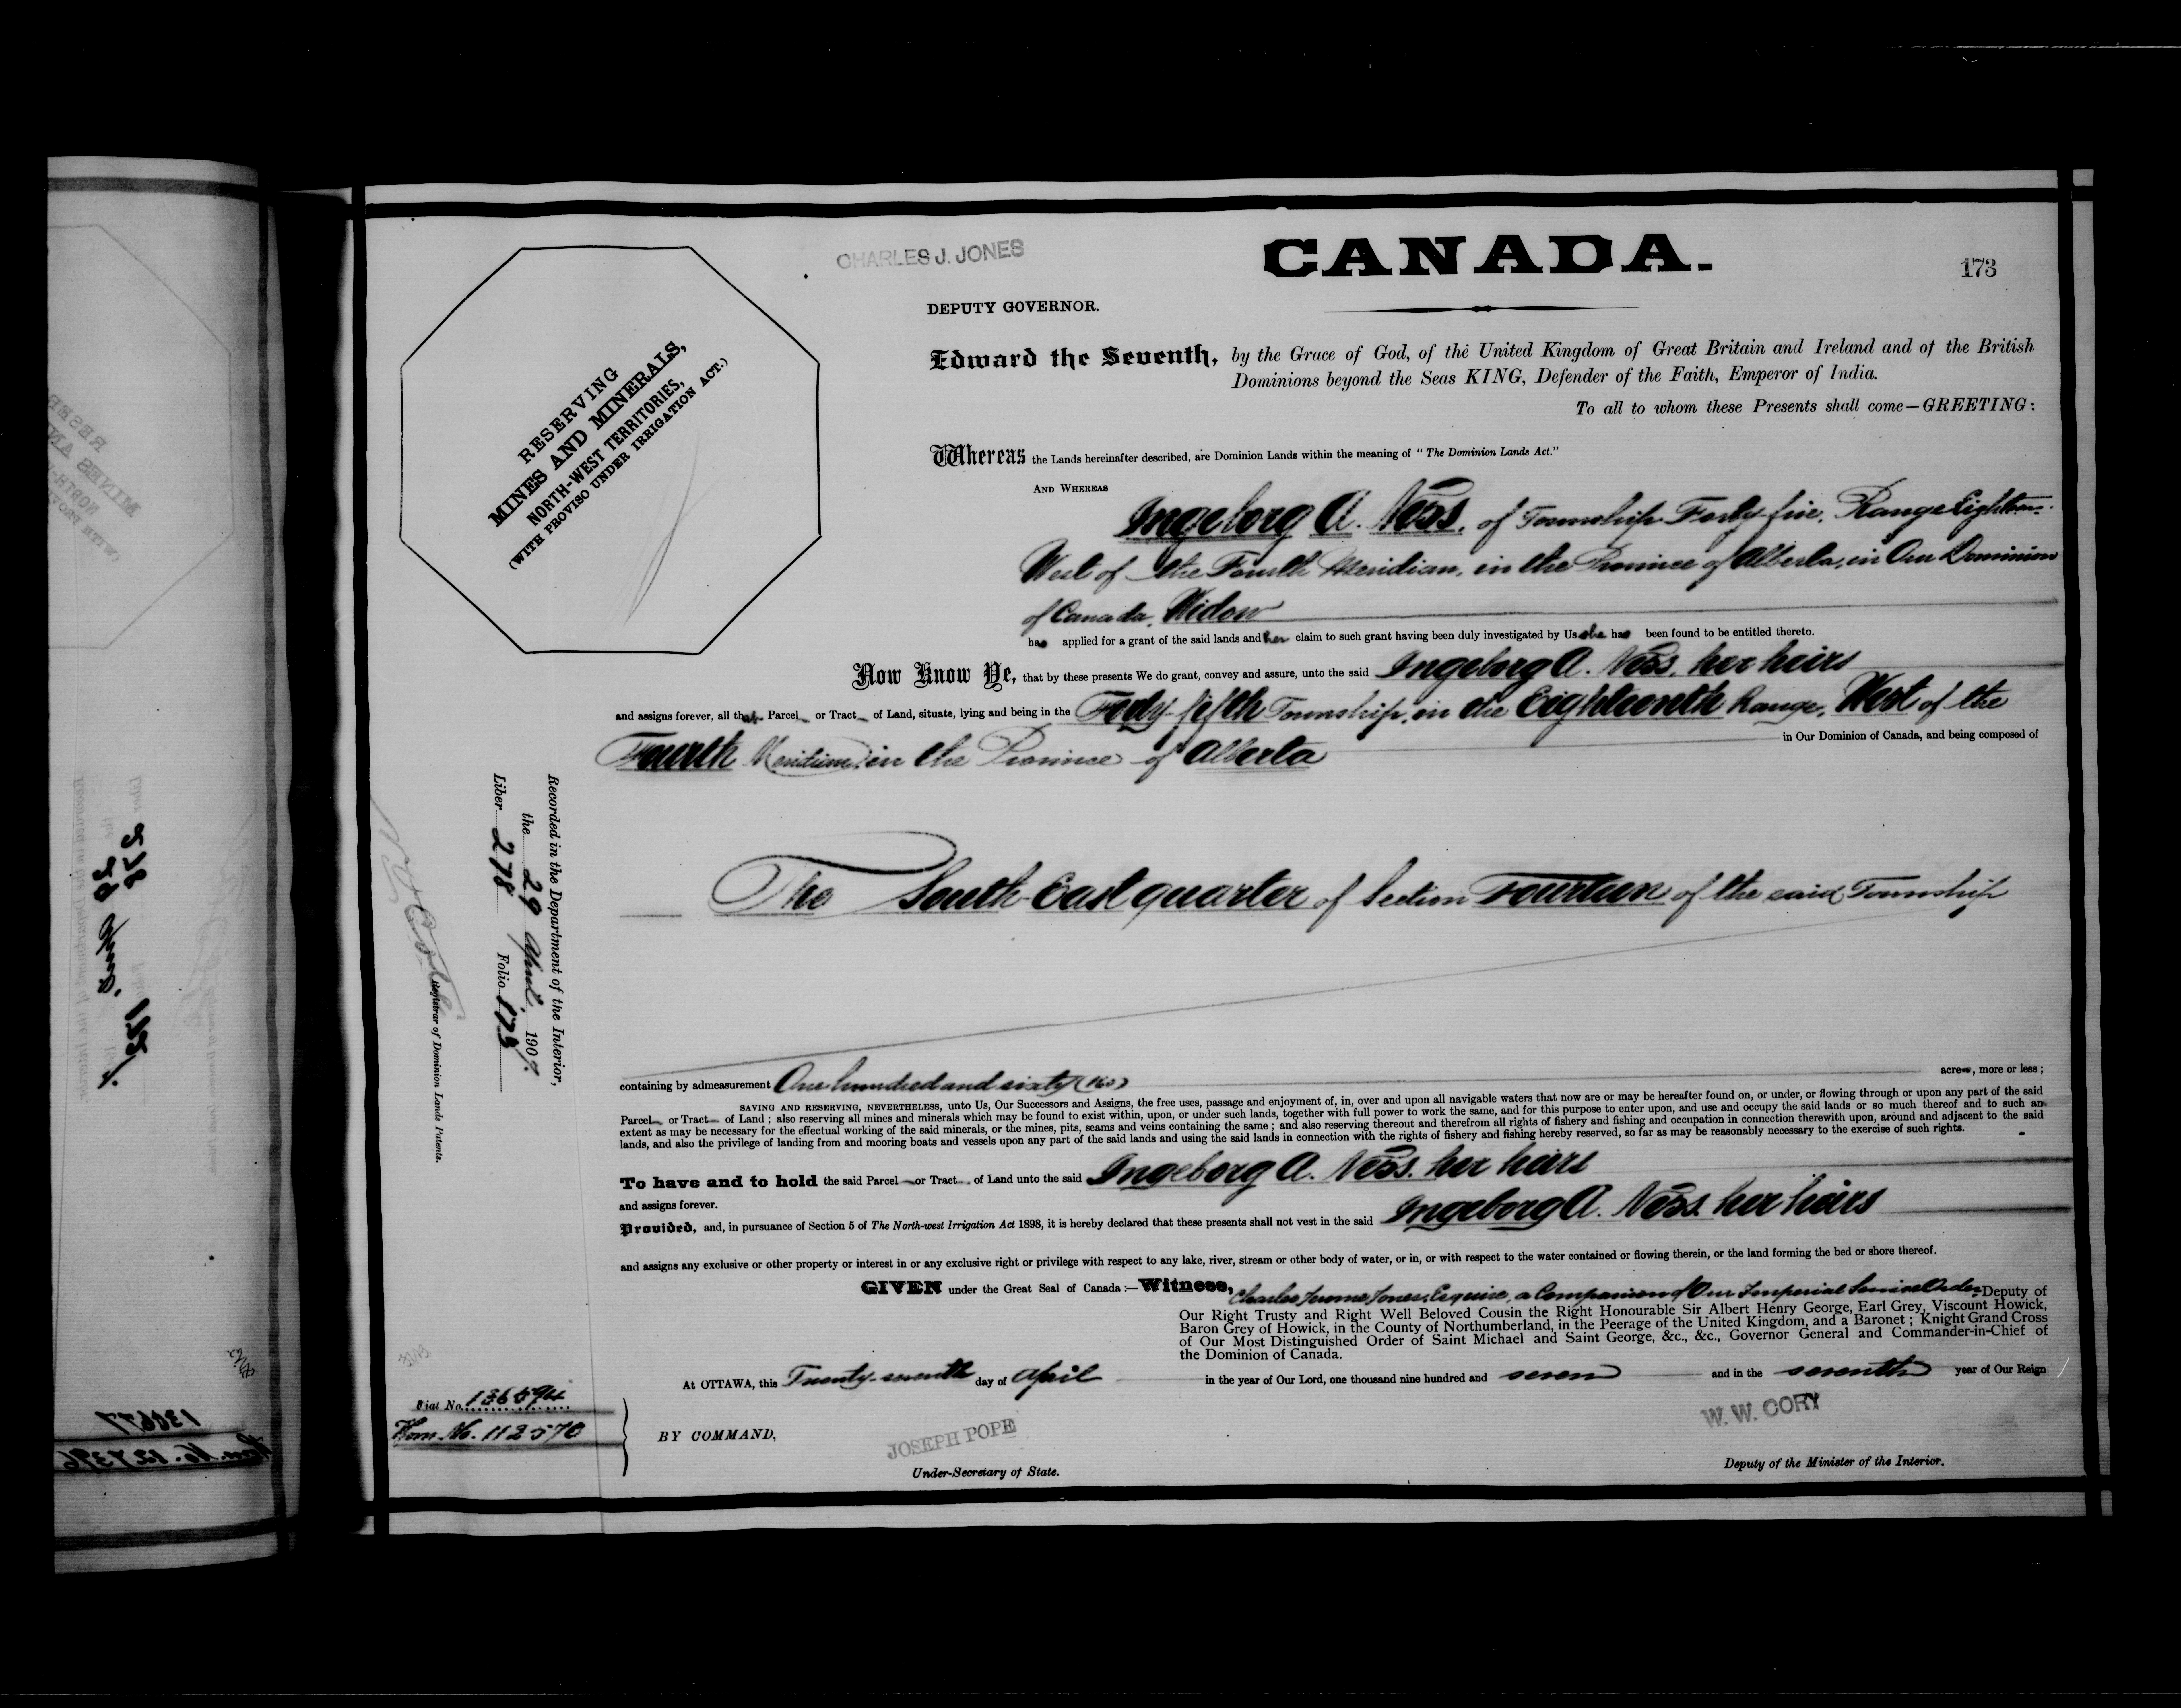 CHARLES J. JONES
CANADA.
173
DEPUTY GOVERNOR.
RESERVING
MINES AND MINERALS,
NORTH-WEST TERRITORIES,
(WITH PROVISO UNDER IRRIGATION ACT.)
Edward the Seventh, by the Grace of God, of the United Kingdom of Great Britain and Ireland and of the British
Dominions beyond the Seas KING, Defender of the Faith, Emperor of India.
To all to whom these Presents shall come—GREETING:
Whereas the Lands hereinafter described, are Dominion Lands within the meaning of "The Dominion Lands Act."
AND WHEREAS
Ingeborg A. Ness, of Township Forty five, Range Eighteen
West of the Fourth Meridian, in the Province of Alberta, in Our Dominion
of Canada, Widow
has applied for a grant of the said lands and her claim to such grant having been duly investigated by Us she has been found to be entitled thereto.
Now Know Ye, that by these presents We do grant, convey and assure, unto the said Ingeborg A. Ness, her heirs
and assigns forever, all that Parcel or Tract of Land, situate, lying and being in the Forty-fifth Township, in the Eighteenth Range, West of the
in Our Dominion of Canada, and being composed of
Fourth Meridian, in the Province of Alberta
The South East quarter of Section Fourteen of the said Township
Recorded in the Department of the Interior,
the 29 April, 1907.
Liber 278 Folio 173
Registrar of Dominion Lands Patents.
containing by admeasurement One hundred and sixty (160) acres, more or less;
SAVING AND RESERVING, NEVERTHELESS, unto Us, Our Successors and Assigns, the free uses, passage and enjoyment of, in, over and upon all navigable waters that now are or may be hereafter found on, or under, or flowing through or upon any part of the said
Parcel or Tract of Land; also reserving all mines and minerals which may be found to exist within, upon, or under such lands, together with full power to work the same, and for this purpose to enter upon, and use and occupy the said lands or so much thereof and to such an
extent as may be necessary for the effectual working of the said minerals, or the mines, pits, seams and veins containing the same; and also reserving thereout and therefrom all rights of fishery and fishing and occupation in connection therewith upon, around and adjacent to the said
lands, and also the privilege of landing from and mooring boats and vessels upon any part of the said lands and using the said lands in connection with the rights of fishery and fishing hereby reserved, so far as may be reasonably necessary to the exercise of such rights.
To have and to hold the said Parcel or Tract of Land unto the said Ingeborg A. Ness, her heirs
and assigns forever.
Provided, and, in pursuance of Section 5 of The North-west Irrigation Act 1898, it is hereby declared that these presents shall not vest in the said Ingeborg A. Ness her heirs
and assigns any exclusive or other property or interest in or any exclusive right or privilege with respect to any lake, river, stream or other body of water, or in, or with respect to the water contained or flowing therein, or the land forming the bed or shore thereof.
GIVEN under the Great Seal of Canada:—Witness, Charles Jerome Jones, Esquire, a Companion of Our Imperial Service Order, Deputy of
Our Right Trusty and Right Well Beloved Cousin the Right Honourable Sir Albert Henry George, Earl Grey, Viscount Howick,
Baron Grey of Howick, in the County of Northumberland, in the Peerage of the United Kingdom, and a Baronet; Knight Grand Cross
of Our Most Distinguished Order of Saint Michael and Saint George, &c., &c., Governor General and Commander-in-Chief of
the Dominion of Canada.
At OTTAWA, this Twenty-seventh day of April in the year of Our Lord, one thousand nine hundred and seven and in the seventh year of Our Reign
Fiat No. 136594
Hom. No. 112570
BY COMMAND,
JOSEPH POPE
Under-Secretary of State.
W. W. CORY
Deputy of the Minister of the Interior.